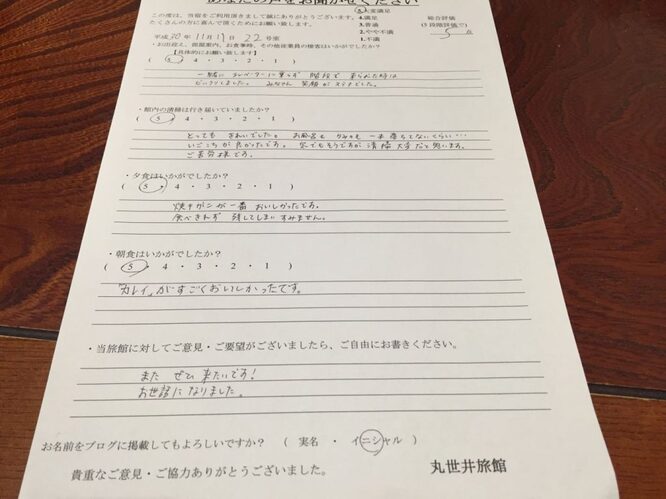 あなたの声をお聞かせください
この度は、当宿をご利用頂きまして誠にありがとうございます。
たくさんの方に喜んで頂くためにお願い致します。
5.大変満足
4.満足
3.普通
2.やや不満
1.不満
総合評価
(5段階評価で)
5 点
平成30年11月17日 22号室
・お出迎え、部屋案内、お食事時、その他従業員の接客はいかがでしたか?
【具体的にお願い致します】
( 5 ・ 4 ・ 3 ・ 2 ・ 1 )
一緒に エレベーターに乗らず 階段で 来られた時は
ビックリしました。 みなさん 笑顔が ステキでした。
・館内の清掃は行き届いていましたか?
( 5 ・ 4 ・ 3 ・ 2 ・ 1 )
とっても きれいでした。 お風呂も かみの毛 一本 落ちてないくらい…
いごこちが 良かったです。 家でもそうですが 清掃 大変だと思います。
ご苦労様です。
・夕食はいかがでしたか?
( 5 ・ 4 ・ 3 ・ 2 ・ 1 )
焼ガニが 一番 おいしかったです。
食べきれず 残してしまい すみません。
・朝食はいかがでしたか?
( 5 ・ 4 ・ 3 ・ 2 ・ 1 )
「カレイ」がすごくおいしかったです。
・当旅館に対してご意見・ご要望がございましたら、ご自由にお書きください。
また ぜひ 来たいです!
お世話になりました。
お名前をブログに掲載してもよろしいですか? ( 実名 ・ イニシャル )
貴重なご意見・ご協力ありがとうございました。
丸世井旅館